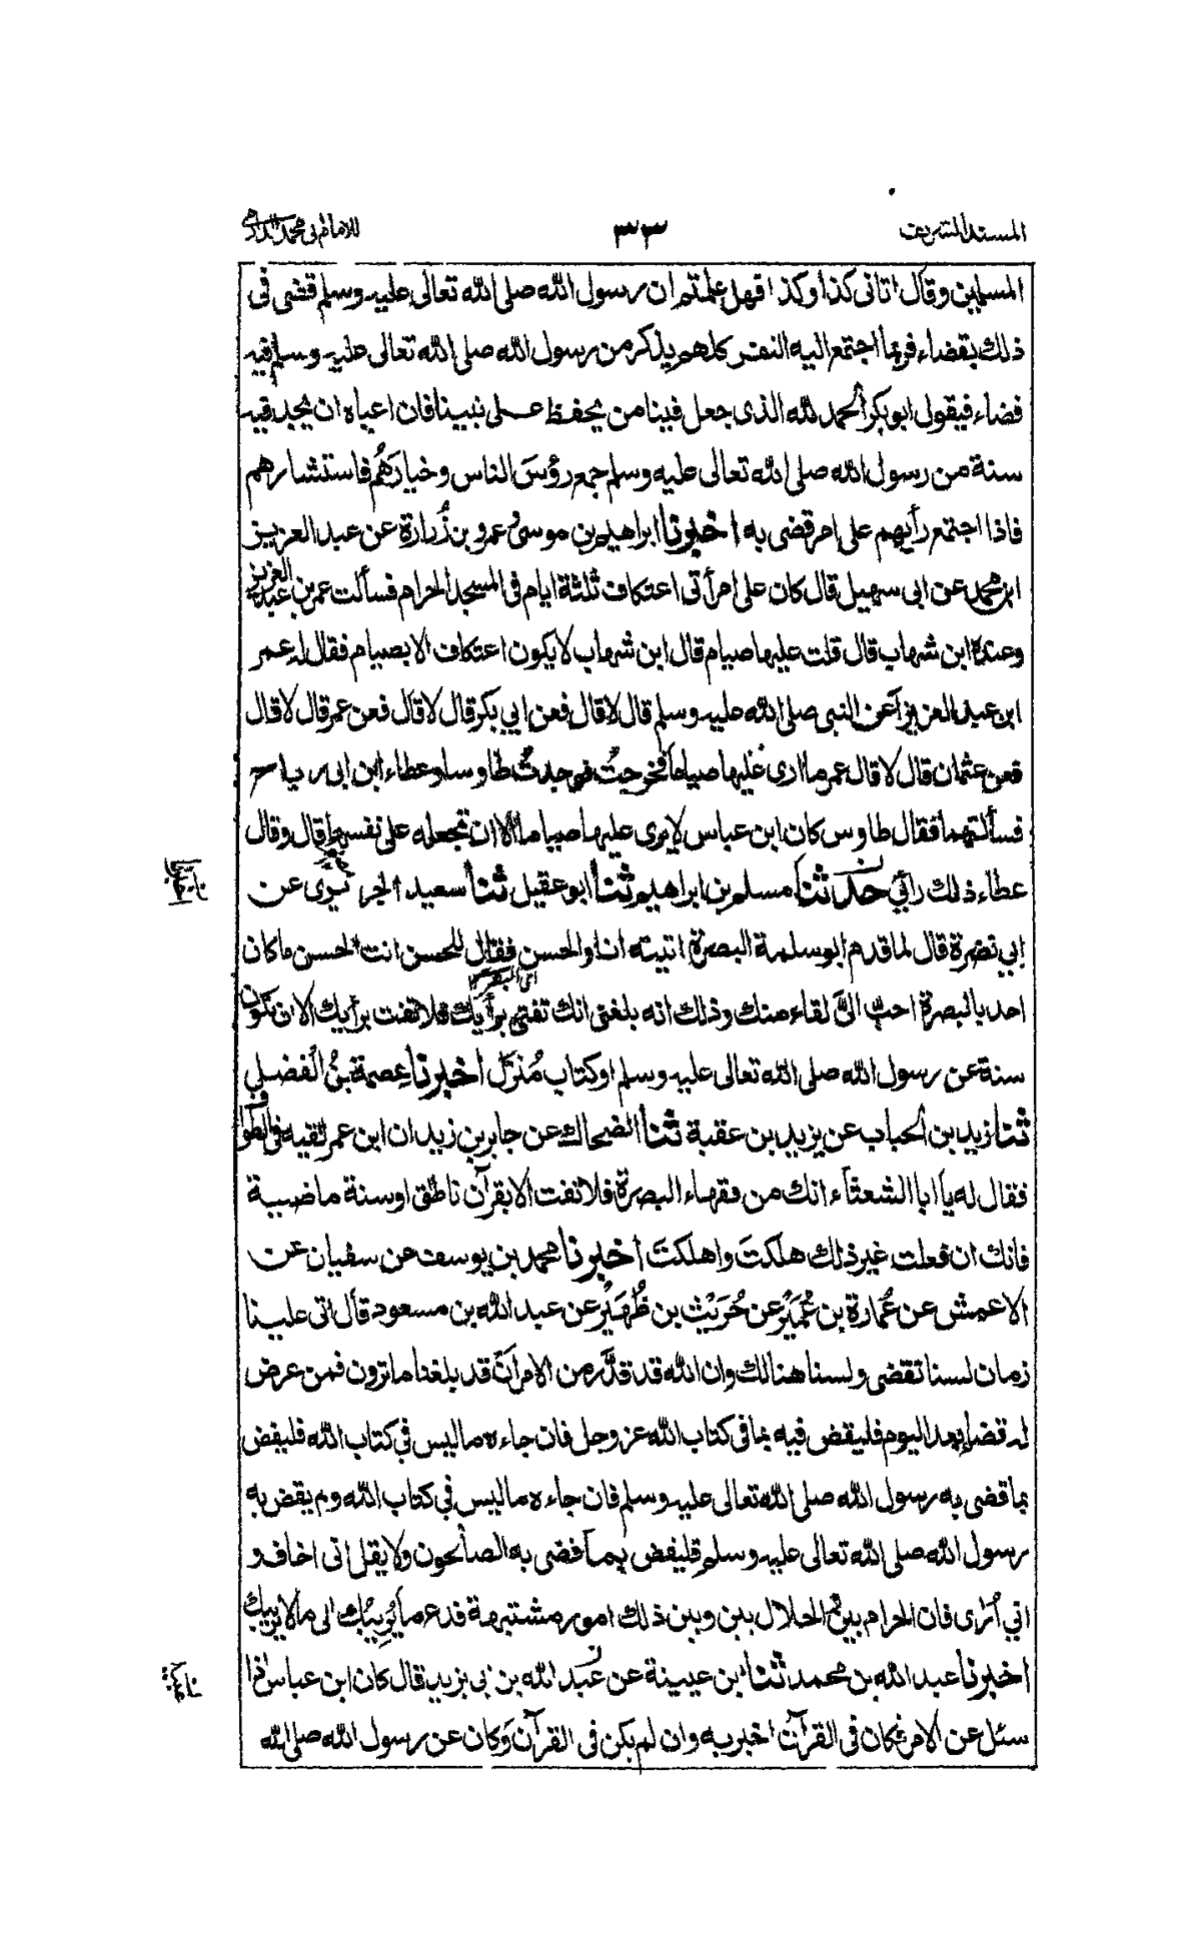 المسند الشريف ٣٣ للامام ابي محمد الدارمي
المسلمين وقال اتانى كذا وكذا فهل علمتم ان رسول الله صلى الله تعالى عليه وسلم قضى فى
ذلك بقضاء فربما اجتمع اليه النفر كلهم يذكر من رسول الله صلى الله تعالى عليه وسلم فيه
قضاء فيقول ابو بكر الحمد لله الذى جعل فينا من يحفظ على نبينا فان اعياه ان يجد فيه
سنة من رسول الله صلى الله تعالى عليه وسلم جمع رؤسَ الناس وخيارَهُم فاستشارهم
فاذا اجتمع رأيهم على امر قضى به اخبرنا ابراهيم بن موسىٰ و عمرو بن زُرارة عن عبد العزيز
ابن محمد عن ابى سهيل قال كان على امرأتى اعتكاف ثلثة ايام فى المسجد الحرام فسألت عمر بن عبد العزيز
وعنده ابن شهاب قال قلت عليها صيام قال ابن شهاب لا يكون اعتكاف الا بصيام فقال له عمر
ابن عبد العزيز أعن النبى صلى الله عليه وسلم قال لا قال فعن ابي بكر قال لا قال فعن عمر قال لا قال
فعن عثمان قال لا قال عمر ما ارى عليها صياما فخرجتُ فوجدتُ طاوسا وعطاء ابن ابى رباح
فسألتهما فقال طاوس كان ابن عباس لا يرى عليها صياما الا ان تجعله على نفسها قال وقال
عطاء ذلك رأيي حدثنا مسلم بن ابراهيم ثنا ابو عقيل ثنا سعيد الجريرى عن
ابي نضرة قال لما قدم ابو سلمة البصرة اتيته انا والحسن فقال للحسن انت الحسن ما كان
احد بالبصرة احبّ الىَّ لقاء منك وذلك انه بلغنى انك تفتى برأيك فلا تفت برأيك الا ان تكون
سنة عن رسول الله صلى الله تعالى عليه وسلم او كتاب مُنزَل اخبرنا عصمة بنُ الفضل
ثنا زيد بن الحباب عن يزيد بن عقبة ثنا الضحاك عن جابر بن زيد ان ابن عمر لقيه فى الطواف
فقال له يا ابا الشعثاء انك من فقهاء البصرة فلا تفت الا بقرآن ناطق او سنة ماضية
فانك ان فعلت غير ذلك هلكتَ واهلكتَ اخبرنا محمد بن يوسف عن سفيان عن
الاعمش عن عُمارة بن عُمَيْر عن حُرَيْث بن ظُهَيْر عن عبد الله بن مسعود قال اتى علينا
زمان لسنا نقضى ولسنا هنالك وان الله قد قدَّر من الامر اَنْ قد بلغنا ما ترون فمن عرض
له قضاء بعد اليوم فليقض فيه بما فى كتاب الله عز وجل فان جاءه ما ليس في كتاب الله فليقض
بما قضى به رسول الله صلى الله تعالى عليه وسلم فان جاءه ما ليس في كتاب الله ولم يقض به
رسول الله صلى الله تعالى عليه وسلم فليقض بما قضى به الصالحون ولا يقل انى اخاف و
اني اُرَى فان الحرام بين والحلال بين وبين ذلك امور مشتبهة فدع ما يُرِيبُك الى ما لا يريبك
اخبرنا عبد الله بن محمد ثنا ابن عيينة عن عبد الله بن ابى يزيد قال كان ابن عباس اذا
سئل عن الامر فكان فى القرآن اخبر به وان لم يكن فى القرآن وَكان عن رسول الله صلى الله